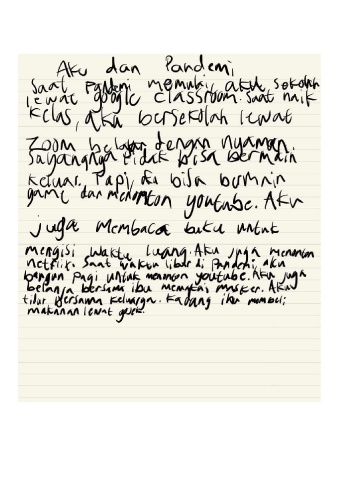 Aku dan Pandemi
Saat pandemi memulai aku sekolah
lewat google classroom. Saat naik
kelas, aku bersekolah lewat
Zoom belajar dengan nyaman.
sayangnya tidak bisa bermain
keluar. Tapi, aku bisa bermain
game dan menonton youtube. Aku
juga membaca buku untuk
mengisi waktu luang. Aku juga menonton
netflix. Saat waktu libur di pandemi, aku
bangun pagi untuk menonton youtube. Aku juga
belanja bersama ibu memakai masker. Aku
tidur bersama keluarga. Kadang ibu membeli
makanan lewat gojek.